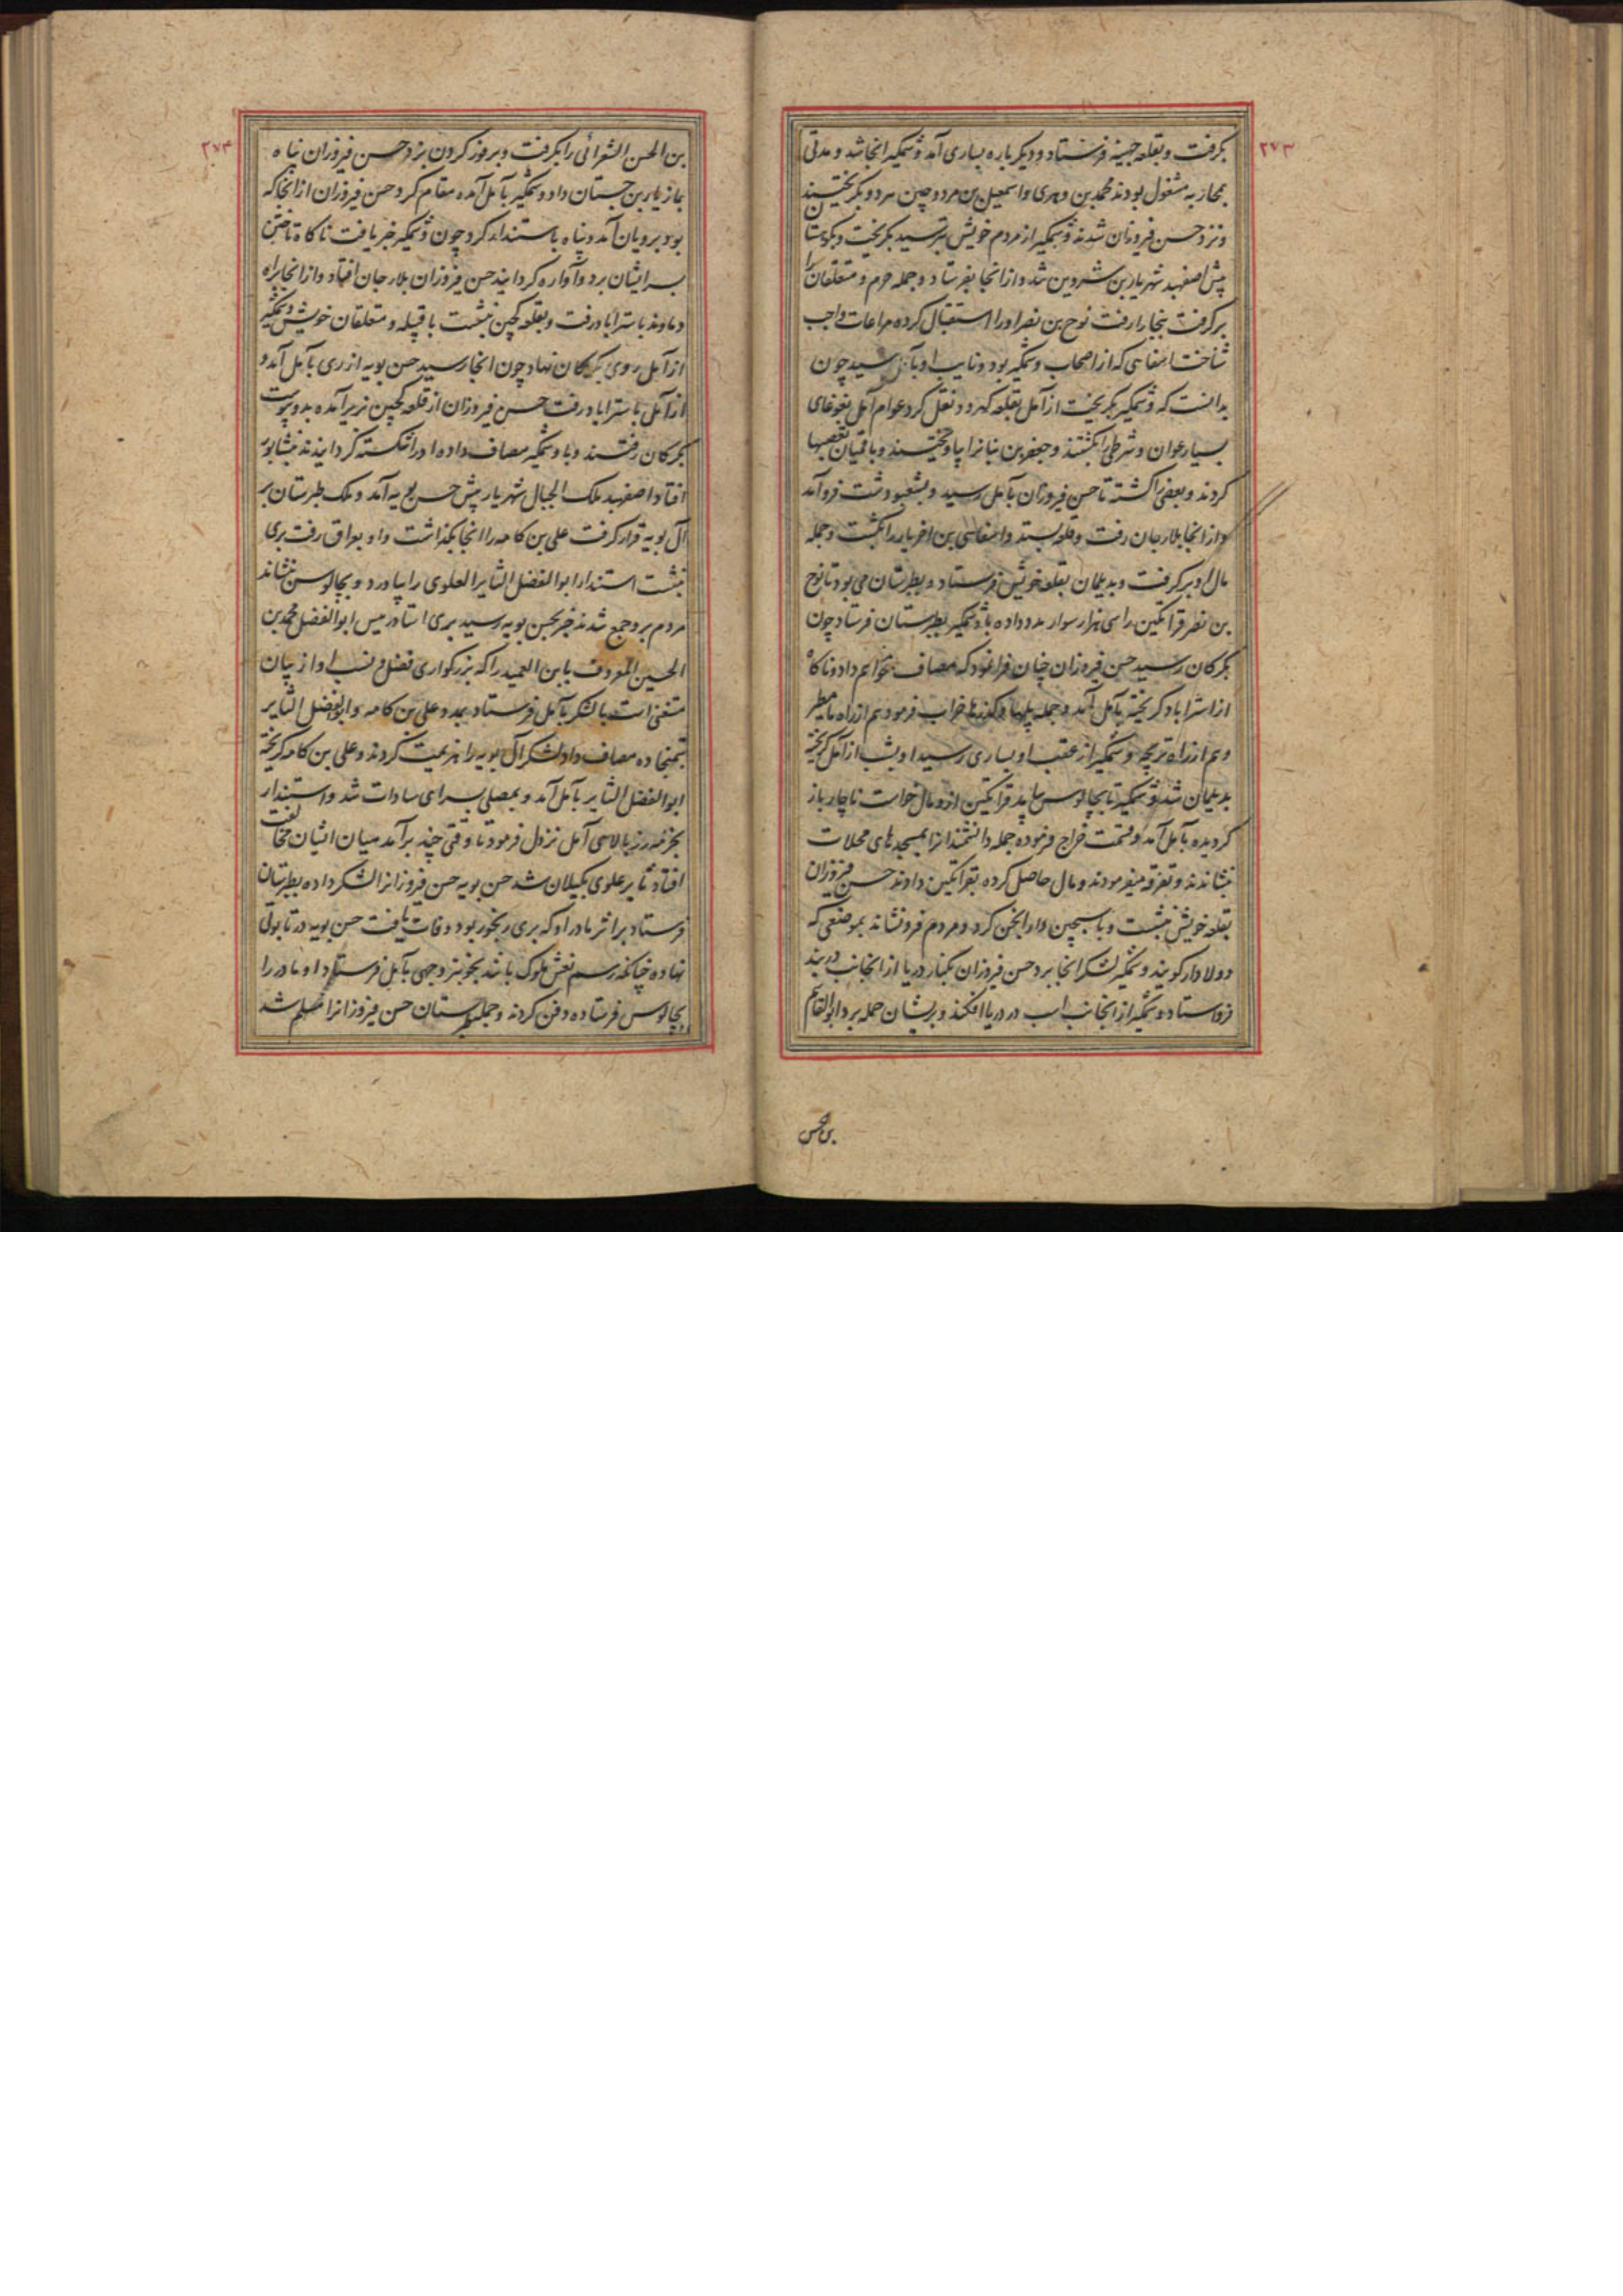 ۲۷۳
بکرفت و بقلعه جهینه فرستاد و دیکر باره بساری آمد وشمکیر انجا شد و مدتی
بمحاربه مشغول بودند محمد بن وهری و اسمعیل بن مردوچین مرد و بکریختند
و نزد حسن فیروزان شدند وشمکیر از مردم خویش بترسید بکریخت و بکوهستان
پیش اصفهبد شهریار بن شروین شد و از انجا بفرستاد و جمله حرم و متعلقان را
برکرفت ببخارا رفت نوح بن نصر او را استقبال کرده مراعات واجب
شناخت اسفاهی که از اصحاب وشمکیر بود و نایب او بآمل رسید چون
بدانست که وشمکیر بکریخت از آمل بقلعه کهرود نقل کرد عوام آمل بغوغای
بسیار عوان و شرطی را بکشتند و جعفر بن بنانرا بیاویختند و باقیان تعصبها
کردند و بعضی را کشته تا حسن فیروزان بآمل رسید و بشعبو دشت فرو آمد
و از انجا بلارجان رفت و قلعه بستد و اسفاهی بن اخریار را بکشت و جمله
مال او برکرفت و بدیلمان بقلعه خویش فرستاد و بطبرستان می بود تا نوح
بن نصر قراتکین را سی هزار سوار مدد داده با وشمکیر بطبرستان فرستاد چون
بکرکان رسید حسن فیروزان چنان فرا نمود که مصاف خواهم داد و ناکاه
از استراباد کریخته بآمل آمد و جمله پلها و کذرها خراب فرمود هم از راه مامطیر
و هم از راه تریجه وشمکیر از عقب او بساری رسید او بشب از آمل کریخته
بدیلمان شد وشمکیر تا بچالوس بیامد قراتکین ازو مال خواست ناچار باز
کردیده بآمل آمد و قسمت خراج فرموده جمله دانشمندانرا بمسجدهای محلات
بنشاندند و تفرقه میفرمودند و مال حاصل کرده بقراتکین دادند حسن فیروزان
بقلعه خویش بنشست و باسیجین دار انجمن کرد و مردم فرو نشاند بموضعی که
دولادار کویند وشمکیر لشکر انجا برد حسن فیروزان بکنار دریا از انجانب دربند
فرو ستاد وشمکیر از انجانب اسب در دریا افکند و بریشان حمله برد ابو القاسم
بن الحسن
۲۷۴
بن الحسن الشعرائی را بکرفت و بروز کردون نزد حسن فیروزان پناه
بمازیار بن جستان داد وشمکیر بآمل آمده مقام کرد حسن فیروزان از انجا که
بود برویان آمد و پناه باستندار کرد چون وشمکیر خبر یافت ناکاه تاختن
بسر ایشان برد و آواره کردانید حسن فیروزان بلارجان افتاد و از انجا براه
دماوند باستراباد رفت و بقلعه کجین بنشست با قبیله و متعلقان خویش وشمکیر
از آمل روی بکرکان نهاد چون انجا رسید حسن بویه از ری بآمل آمد و
از آمل باستراباد رفت حسن فیروزان از قلعه کجین زیر آمده بدو پیوست
بکرکان رفتند و با وشمکیر مصاف داده او را شکسته کردانیدند بنشابور
افتاد اصفهبد ملک الجبال شهریار پیش حسن بویه آمد و ملک طبرستان بر
آل بویه قرار کرفت علی بن کامه را انجا بکذاشت و او بعراق رفت بری
بنشست استندار ابو الفضل الثایر العلوی را بیاورد و بچالوس بنشاند
مردم برو جمع شدند خبر بحسن بویه رسید بری استاد رییس ابو الفضل محمد بن
الحسین المعروف بابن العمید را که بزرکواری فضل و نسب او از بیان
مستغنی است با لشکر بآمل فرستاد بمدد علی بن کامه و ابو الفضل الثایر
بتمنجاده مصاف داد لشکر آل بویه را هزیمت کردند و علی بن کامه کریخته
ابو الفضل الثایر بآمل آمد و بمصلی بسرای سادات شد و استندار
بخرمه رز بالای آمل نزول فرمود تا وقتی چند برآمد میان ایشان مخالفت
افتاد ثایر علوی بکیلان شد حسن بویه حسن فیروزانرا لشکر داده بطبرستان
فرستاد بر اثر مادر او که بری رنجور بود وفات یافت حسن بویه در تابوتی
نهاده چنانکه رسم نعش ملوک باشد بخوبتر وجهی بآمل فرستاد او مادر را
بچالوس فرستاده دفن کردند و جمله طبرستان حسن فیروزانرا مسلم شد